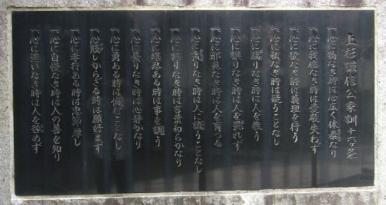 上杉謙信公家訓十六ケ条
心に物なき時は心広く体泰なり
心に我儘なき時は愛敬失わず
心に欲なき時は義理を行う
心に私なき時は疑うことなし
心に驕りなき時は人を教う
心に誤りなき時は人を畏れず
心に邪見なき時は人を育つる
心に貪りなき時は人に諂うことなし
心に怒りなき時は言葉和らかなり
心に堪忍ある時は事を調う
心に曇りなき時は心静かなり
心に勇ある時は悔やむことなし
心賤しからざる時は願好まず
心に孝行ある時は忠節厚し
心に自慢なき時は人の善を知り
心に迷いなき時は人を咎めず